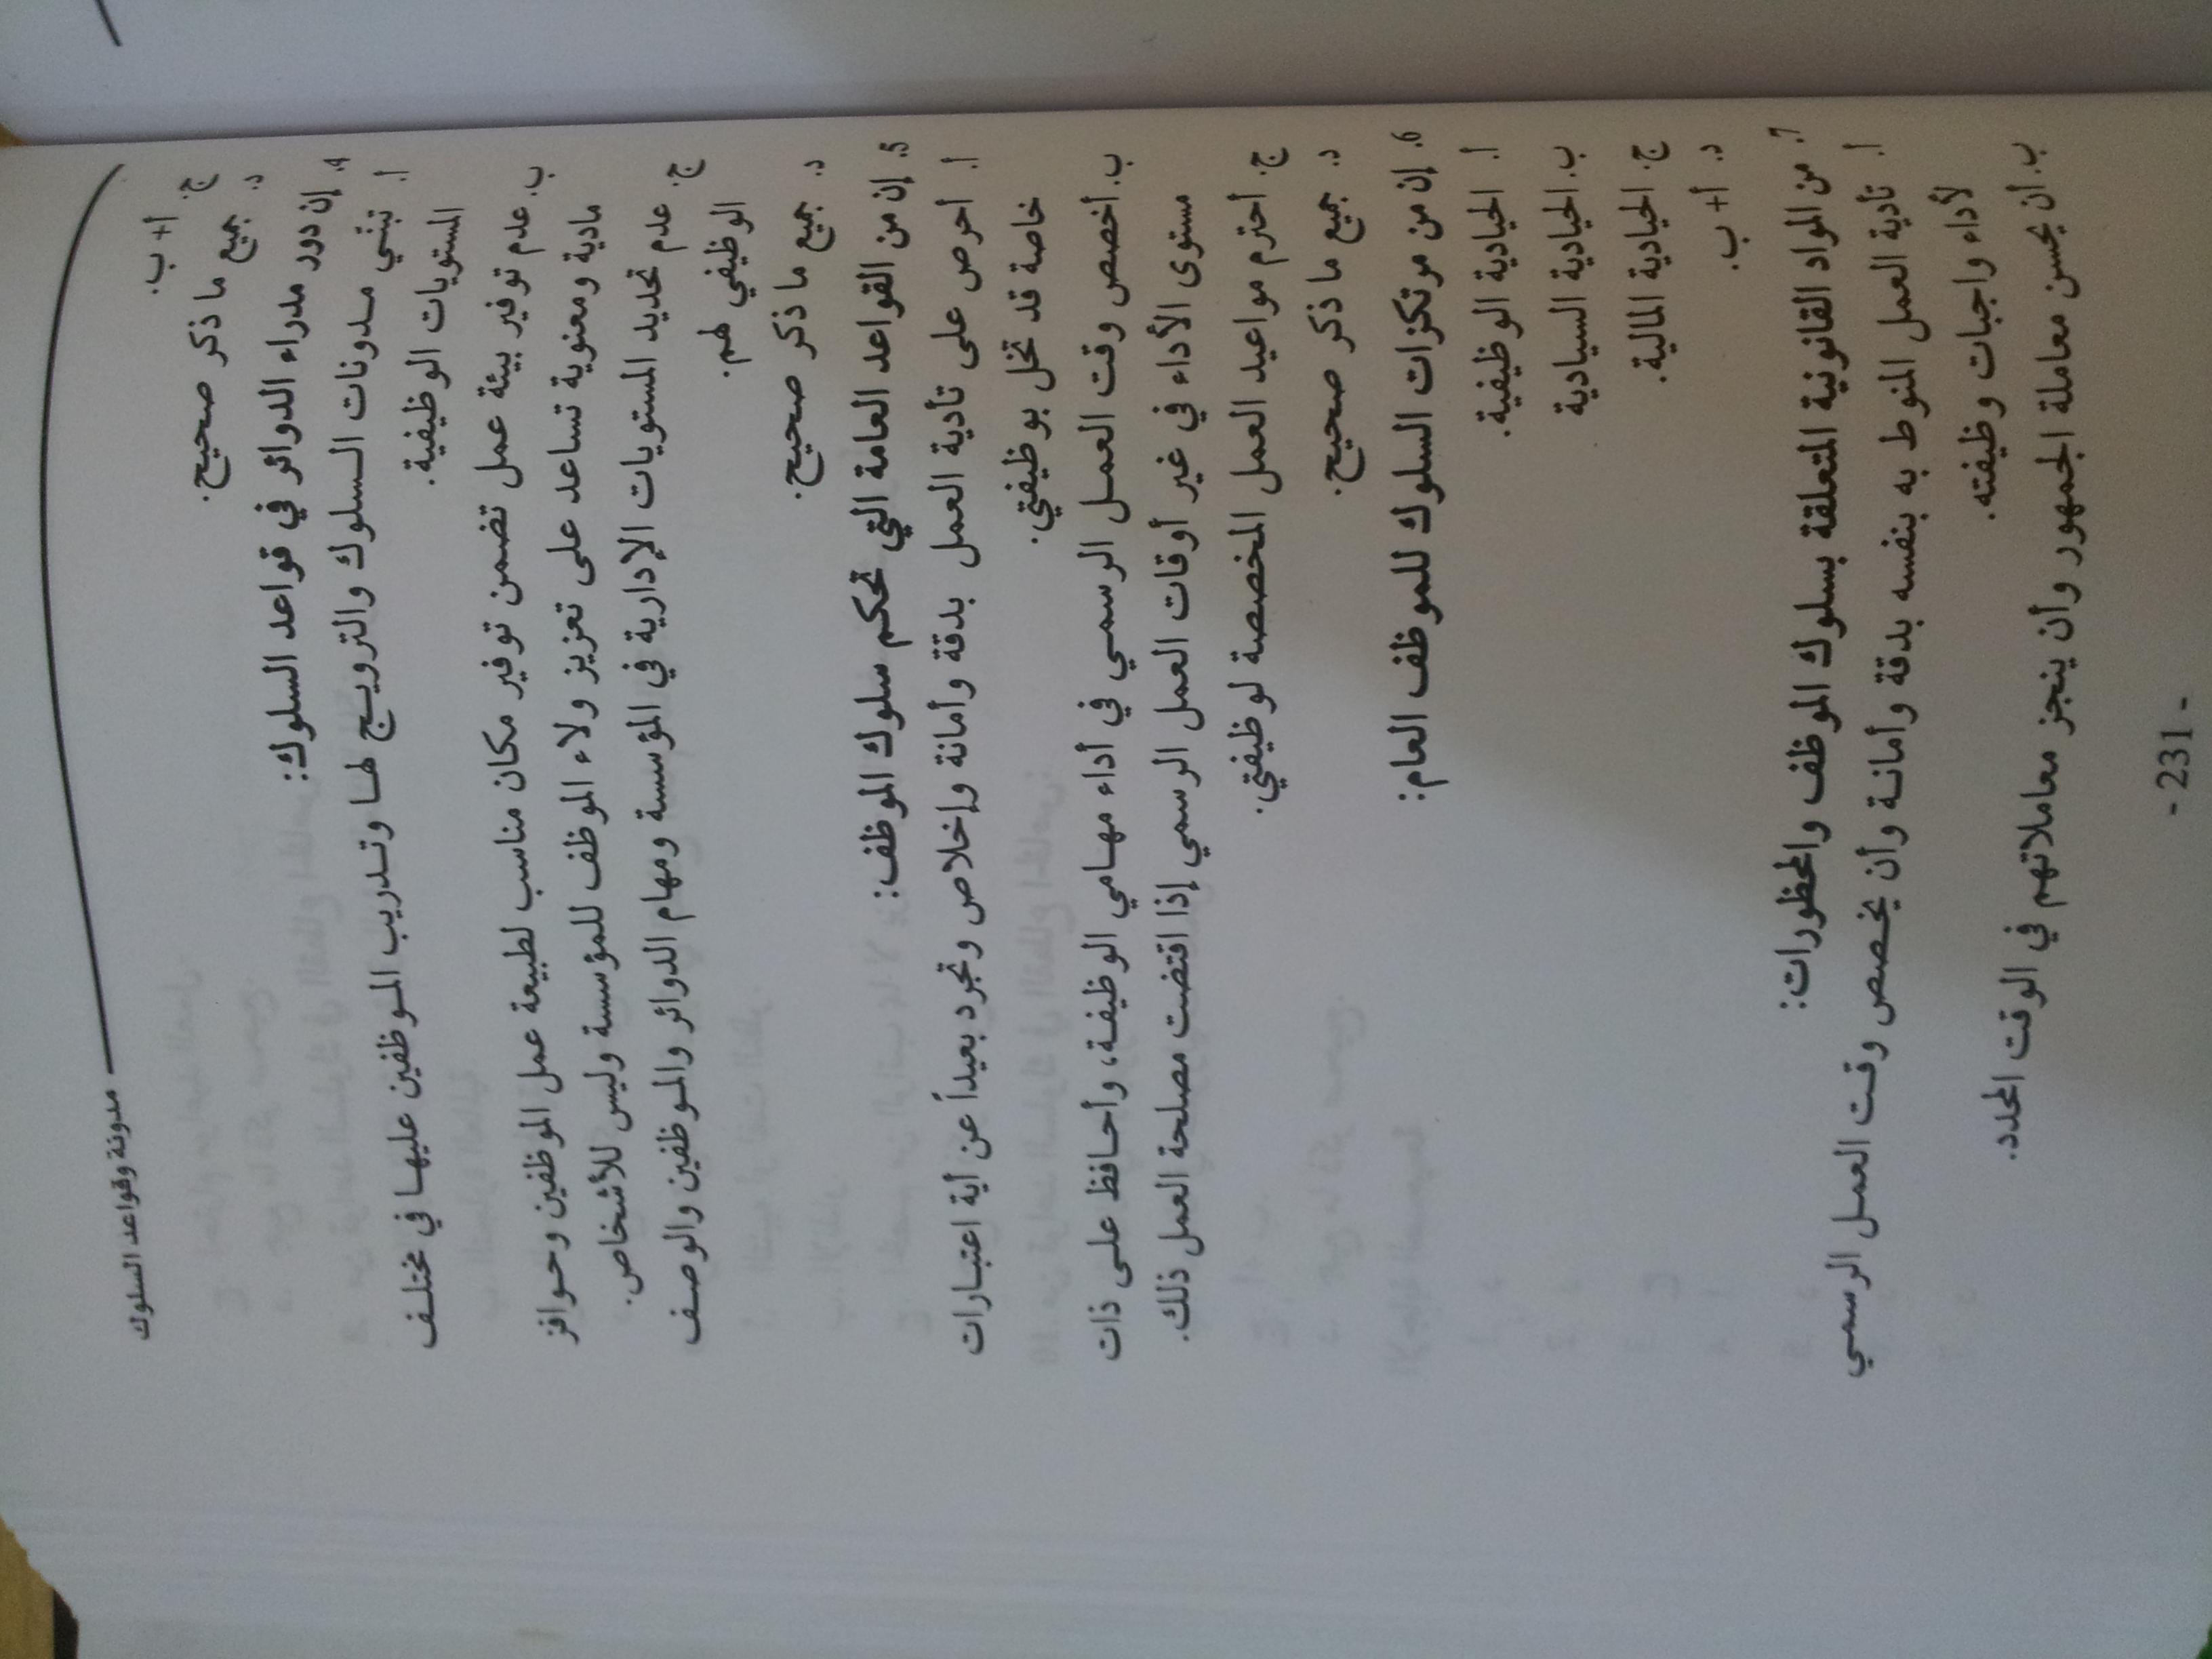 مدونة وقواعد السلوك
ج. أ + ب.
د. جميع ما ذكر صحيح.
4. إن دور مدراء الدوائر في قواعد السلوك:
أ. تبني مدونات السلوك والترويج لها وتدريب الموظفين عليها في مختلف
المستويات الوظيفية.
ب. عدم توفير بيئة عمل تضمن توفير مكان مناسب لطبيعة عمل الموظفين وحوافز
مادية ومعنوية تساعد على تعزيز ولاء الموظف للمؤسسة وليس للأشخاص.
ج. عدم تحديد المستويات الإدارية في المؤسسة ومهام الدوائر والموظفين والوصف
الوظيفي لهم.
د. جميع ما ذكر صحيح.
5. إن من القواعد العامة التي تحكم سلوك الموظف:
أ. أحرص على تأدية العمل بدقة وأمانة وإخلاص وتجرد بعيداً عن أية اعتبارات
خاصة قد تخل بوظيفتي.
ب. أخصص وقت العمل الرسمي في أداء مهامي الوظيفة، وأحافظ على ذات
مستوى الأداء في غير أوقات العمل الرسمي إذا اقتضت مصلحة العمل ذلك.
ج. أحترم مواعيد العمل المخصصة لوظيفتي.
د. جميع ما ذكر صحيح.
6. إن من مرتكزات السلوك للموظف العام:
أ. الحيادية الوظيفية.
ب. الحيادية السيادية
ج. الحيادية المالية.
د. أ + ب.
7. من المواد القانونية المتعلقة بسلوك الموظف والمحظورات:
أ. تأدية العمل المنوط به بنفسه بدقة وأمانة وأن يخصص وقت العمل الرسمي
لأداء واجبات وظيفته.
ب. أن يحسن معاملة الجمهور وأن ينجز معاملاتهم في الوقت المحدد.
- 231 -